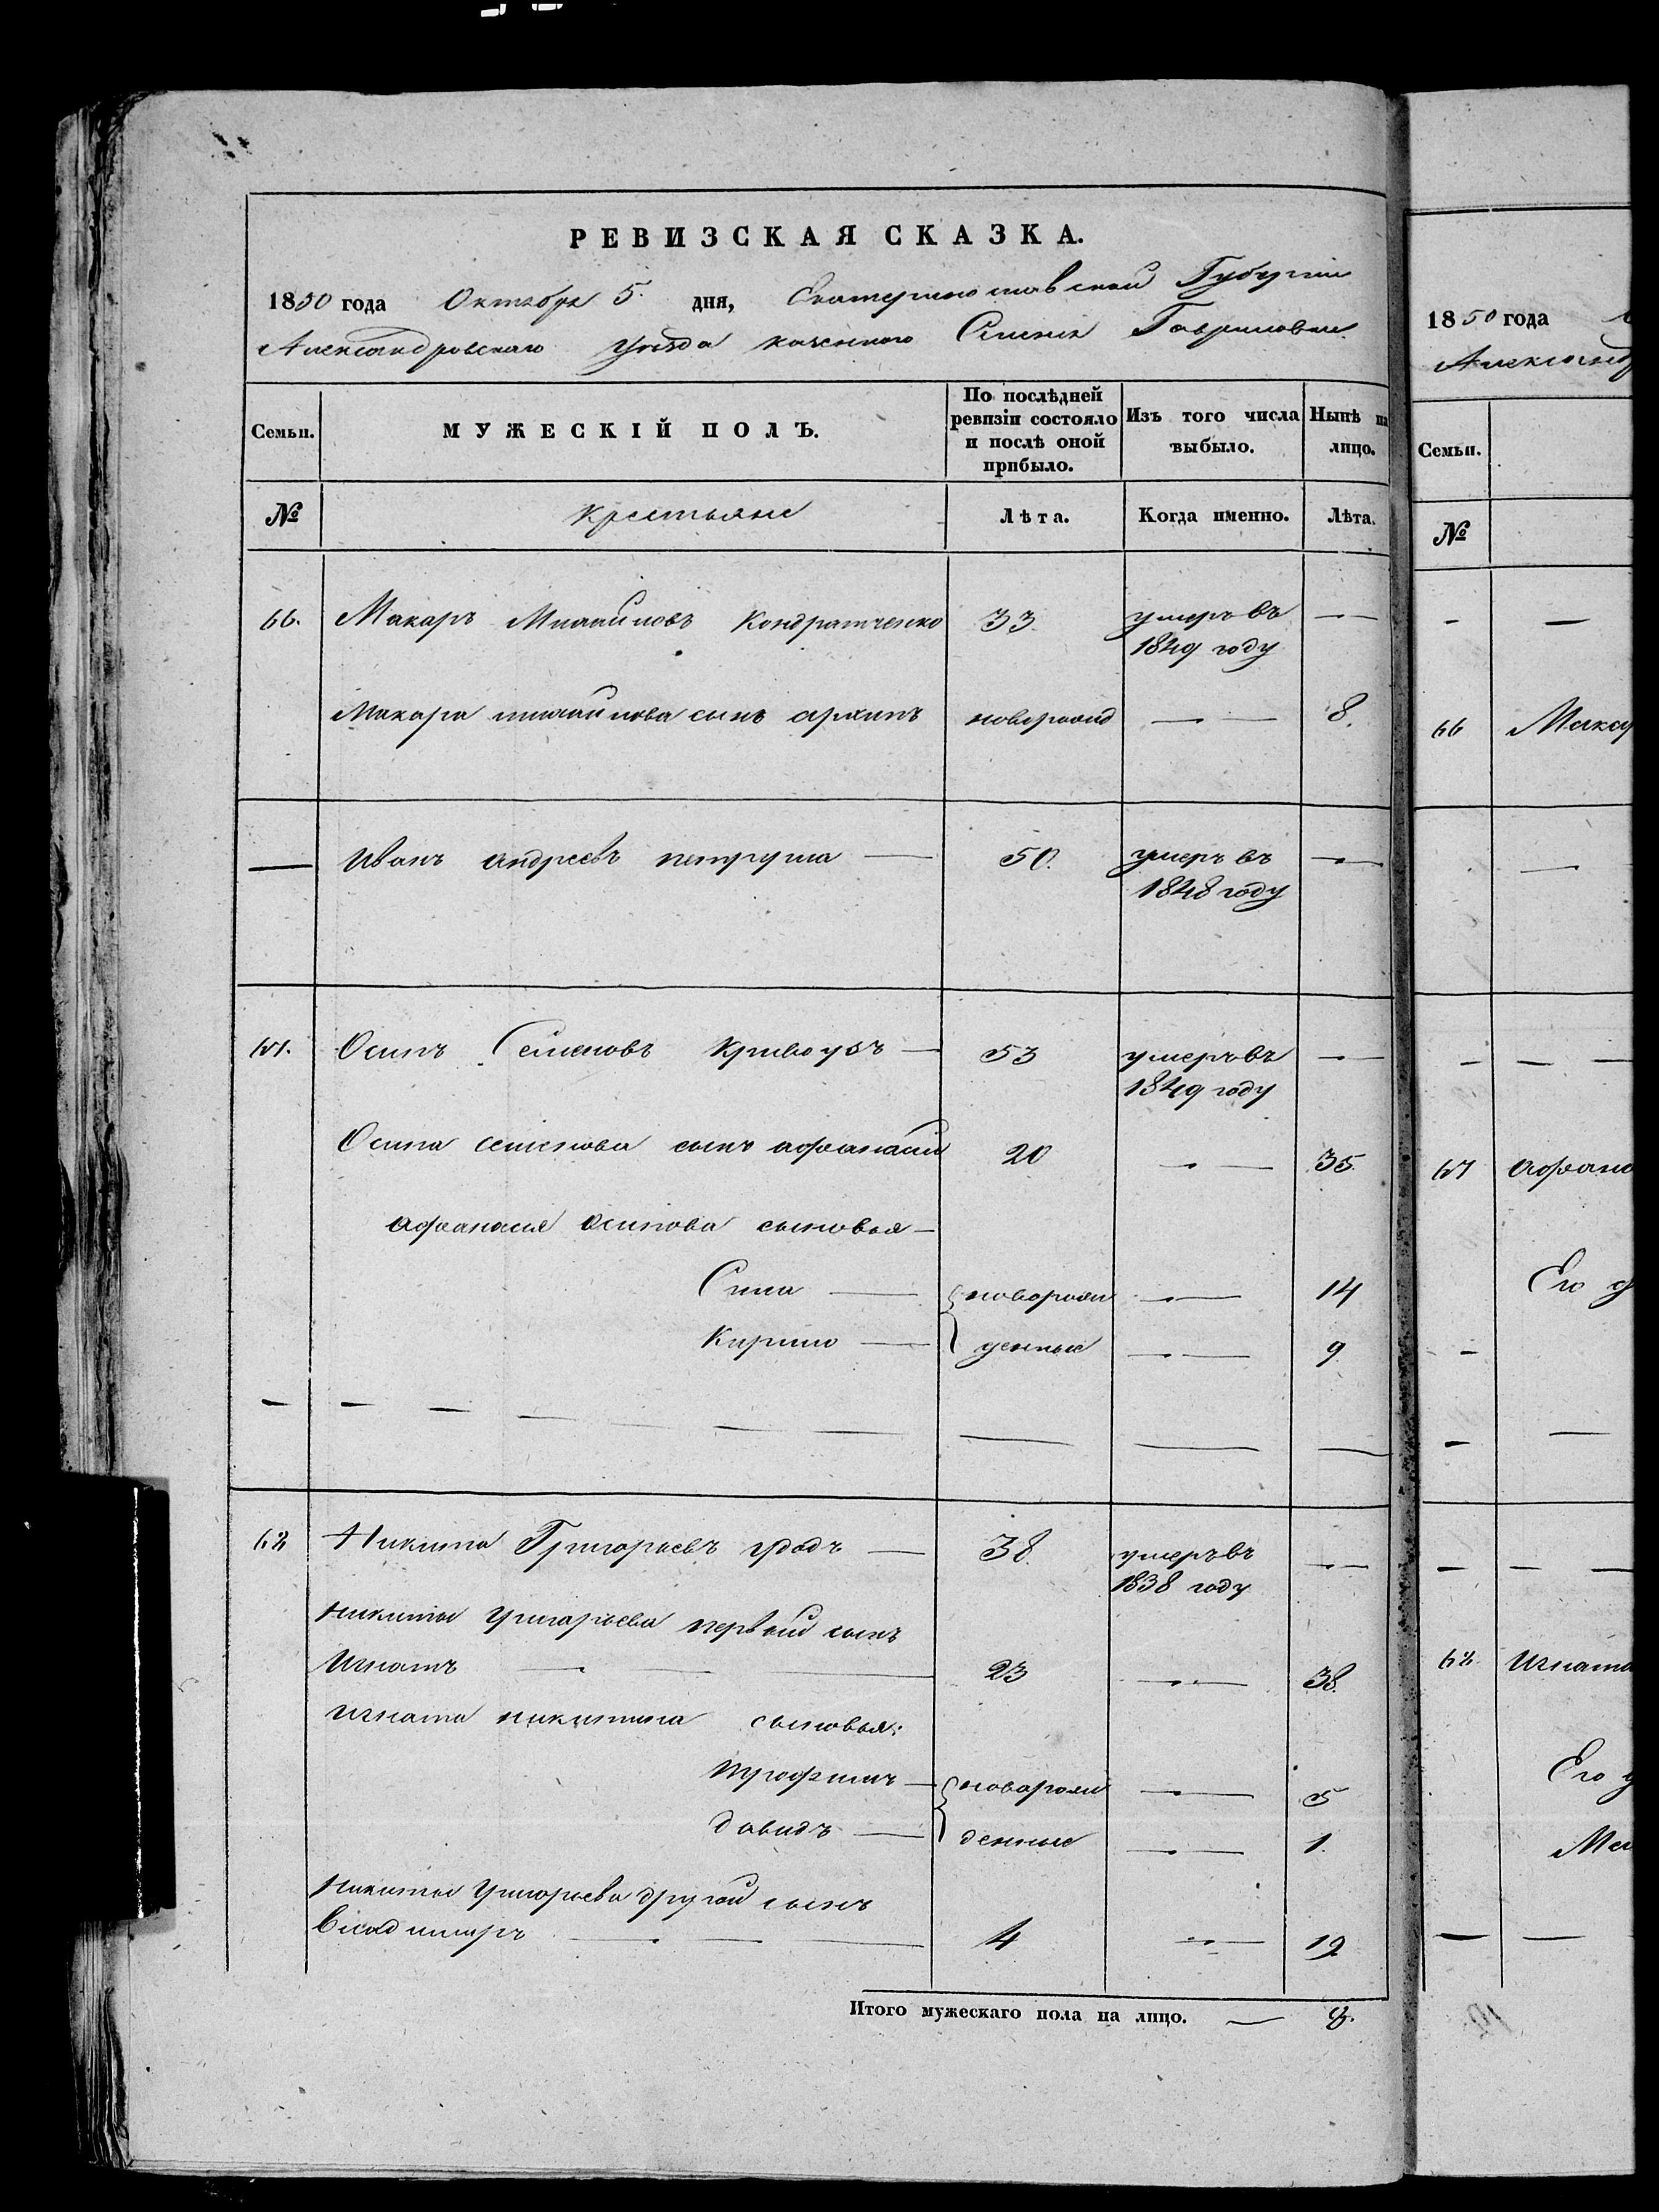 РЕВИЗСКАЯ СКАЗКА.
1850 года Октября 5. дня, Екатеринославской Губерніи
Александровскаго Уезда казенного Селенія Гавриловки.
Семьи. МУЖЕСКІЙ ПОЛЪ. По послѣдней ревизіи состояло и послѣ оной прибыло. Изъ того числа выбыло. Нынѣ на лицо.
№ Крестьяне Лѣта. Когда именно. Лѣта.
66. Макаръ Михайловъ Кондратченко 33. умеръ въ
1849 году
Макара михайлова сынъ архипъ новорожд 8.
Иванъ андреевъ петруша 50. умеръ въ
1848 году
67. Осипъ Семеновъ Кривоузъ 53 умеръ въ
1849 году
Осипа семенова сынъ афанасій 20 35.
афанасія осипова сыновья
Сила новорож 14
Кирило денные 9
68 Никита Григорьевъ 38. умеръ въ
1838 году
никиты григорьева первый сынъ
Игнатъ 23 38.
игната никитина сыновья:
трофимъ новорож 5
давидъ денные 1.
никиты григорьева другой сынъ
владимиръ 4 19
Итого мужескаго пола на лицо. 8.
1850 года
Александ
Семьи.
№
66 Макар
67 афана
Его
68 игната
Его